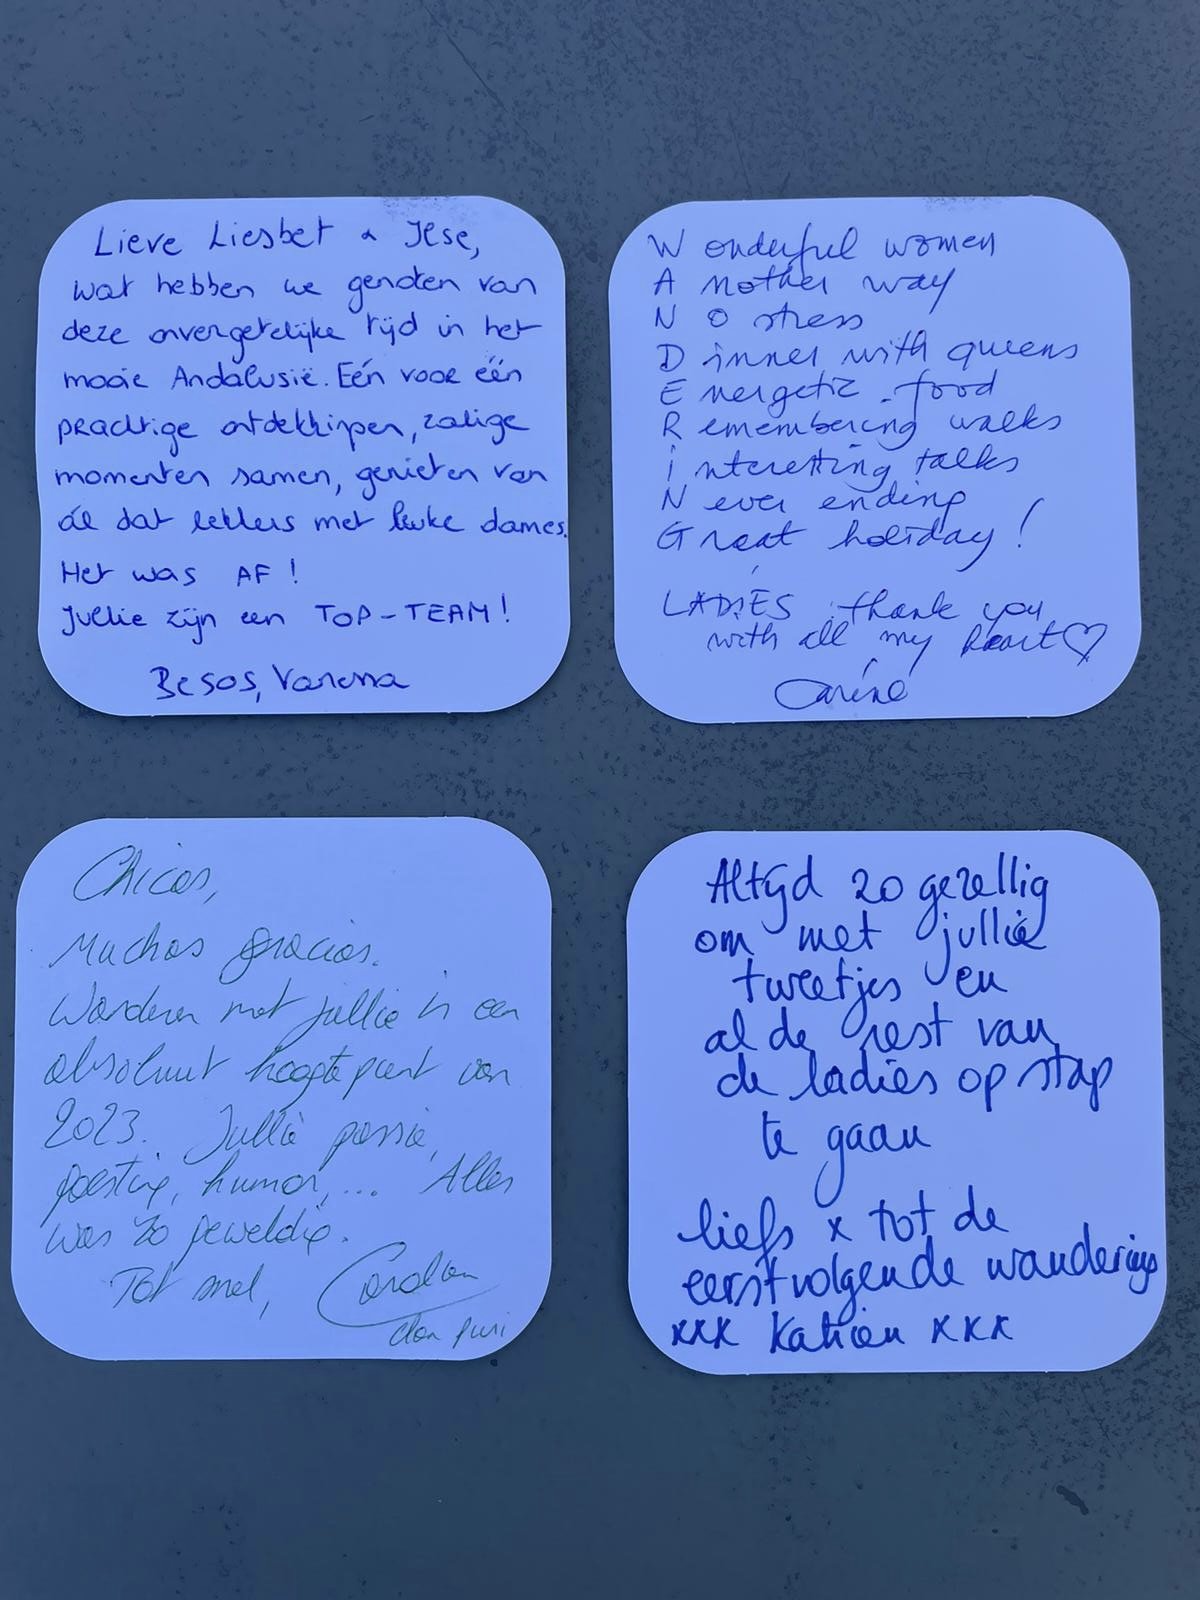 Lieve Liesbet & Ilse,
wat hebben we genoten van
deze onvergetelijke tijd in het
mooie Andalusië. Eén voor één
prachtige ontdekkingen, zalige
momenten samen, genieten van
ál dat lekkers met leuke dames.
Het was AF!
Jullie zijn een TOP-TEAM!
Besos, Vanessa
Wonderful women
Another way
NO stress
Dinner with queens
Energetic food
Remembering walks
interesting talks
Never ending
Great holiday!
LADIES thank you
with all my heart ♡
Carine
Chicas,
Muchas gracias.
Wandelen met jullie is een
absoluut hoogtepunt van
2023. Jullie passie,
goesting, humor, ... Alles
was zo geweldig.
Tot snel,
Altijd zo gezellig
om met jullie
tweetjes en
al de rest van
de ladies op stap
te gaan
liefs x tot de
eerstvolgende wandering
xxx Katrien xxx